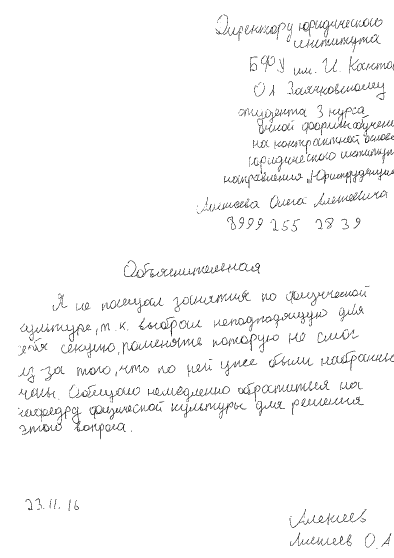 Директору юридического
института
БФУ им. И. Канта
О.А. Заячковскому
студента 3 курса
очной формы обучения
на контрактной основе
юридического института
направления "Юриспруденция"
Алексеева Олега Алексеевича
8999 255 2839
Объяснительная
Я не посещал занятия по физической
культуре, т.к. выбрал неподходящую для
себя секцию, поменять которую не смог
из за того, что по ней уже были набраны
члены. Обещаю немедленно обратиться на
кафедру физической культуры для решения
этого вопроса.
23.11.16
Алексеев
Алексеев О.А